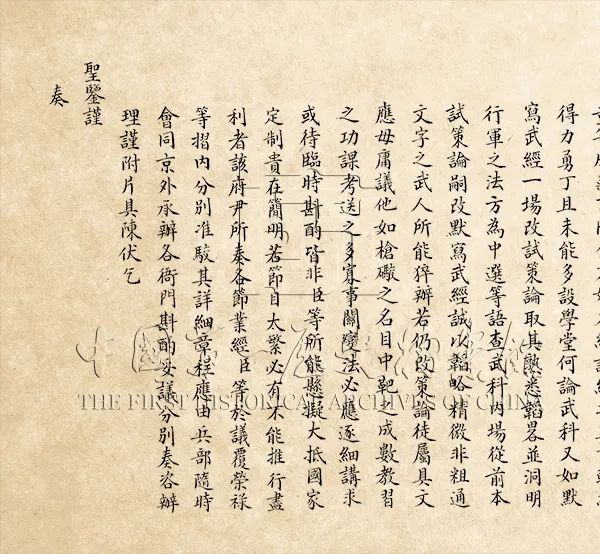 得力勇丁且未能多設學堂何論武科又如默
寫武經一場改試策論取其熟悉韜畧並洞明
行軍之法方為中選等語查武科內場從前本
試策論嗣改默寫武經誠以韜略精微非粗通
文字之武人所能猝辦若仍改策論徒屬具文
應毋庸議他如槍礮之名目中靶之成數教習
之功課考送之多寡事關創法必應逐細講求
或待臨時斟酌皆非臣等所能懸擬大抵國家
定制貴在簡明若節目太繁必有不能推行盡
利者該府尹所奏各節業經臣等於議覆榮祿
等摺內分別准駁其詳細章程應由兵部隨時
會同京外承辦各衙門斟酌妥議分別奏咨辦
理謹附片具陳伏乞
聖鑒謹
奏
THE FIRST HISTORICAL ARCHIVES OF CHINA